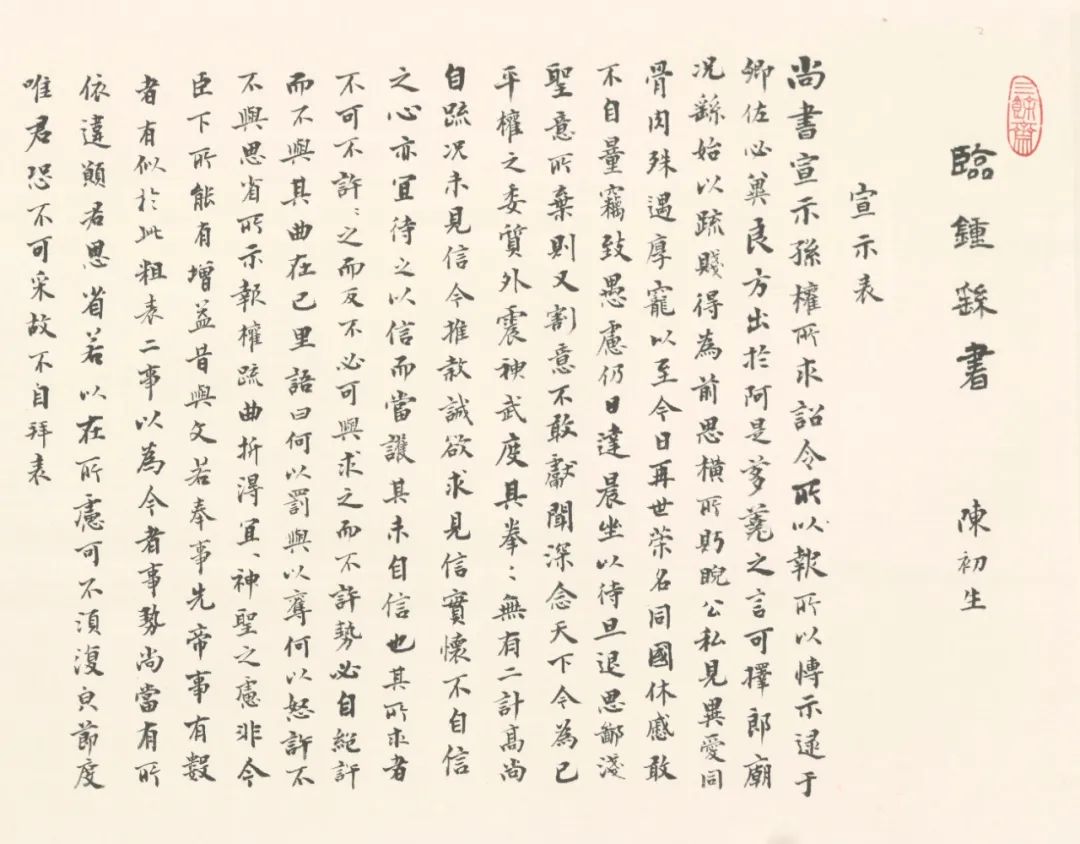 三餘齋
臨鍾繇書 陳初生
宣示表
尚書宣示孫權所求詔令所以報所以博示逮于
卿佐必冀良方出於阿是芻蕘之言可擇郎廟
况繇始以疏賤得為前思橫所眄睨公私見異愛同
骨肉殊遇厚寵以至今日再世榮名同國休慼敢
不自量竊致愚慮仍日達晨坐以待旦退思鄙淺
聖意所棄則又割意不敢獻聞深念天下今為已
平權之委質外震神武度其拳〻無有二計高尚
自疏况未見信今推款誠欲求見信實懷不自信
之心亦宜待之以信而當護其未自信也其所求者
不可不許〻之而反不必可與求之而不許勢必自絕許
而不與其曲在己里語曰何以罰與以奪何以怒許不
不與思省所示報權疏曲折得宜、神聖之慮非今
臣下所能有增益昔與文若奉事先帝事有數
者有似於此粗表二事以為今者事勢尚當有所
依違願君思省若以在所慮可不須復㒵節度
唯君恐不可采故不自拜表